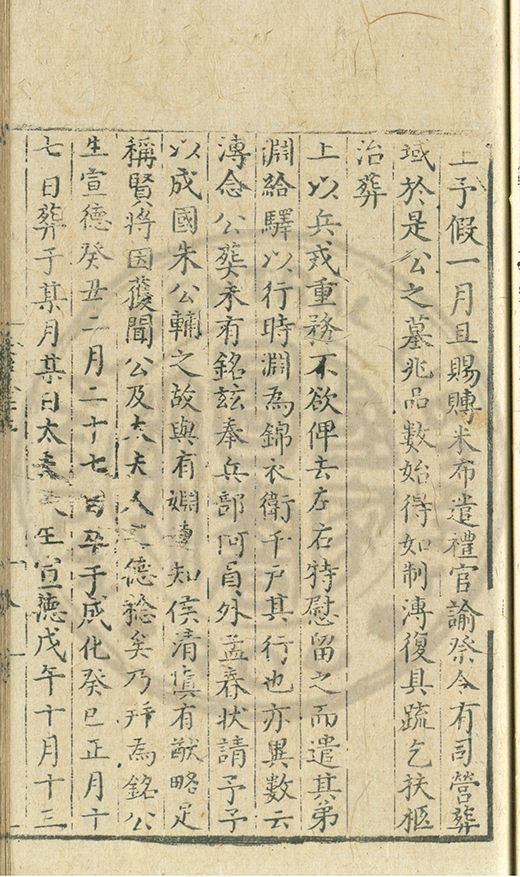 上予假一月且賜賻米布遣禮官諭祭令有司營葬
域於是公之墓兆品數始得如制溥復具疏乞扶柩
治葬
上以兵戎重務不欲俾去左右特慰留之而遣其弟
淵給驛以行時淵為錦衣衛千戶其行也亦異數云
溥念公葬未有銘玆奉兵部何員外孟春狀請予予
以成國朱公輔之故與有姻連知侯清慎有猷略足
稱賢將因獲聞公及夫人之德稔矣乃序為銘公
生宣德癸丑二月二十七日卒于成化癸巳正月十
七日葬于某月某日太夫人生宣德戊午十月十三